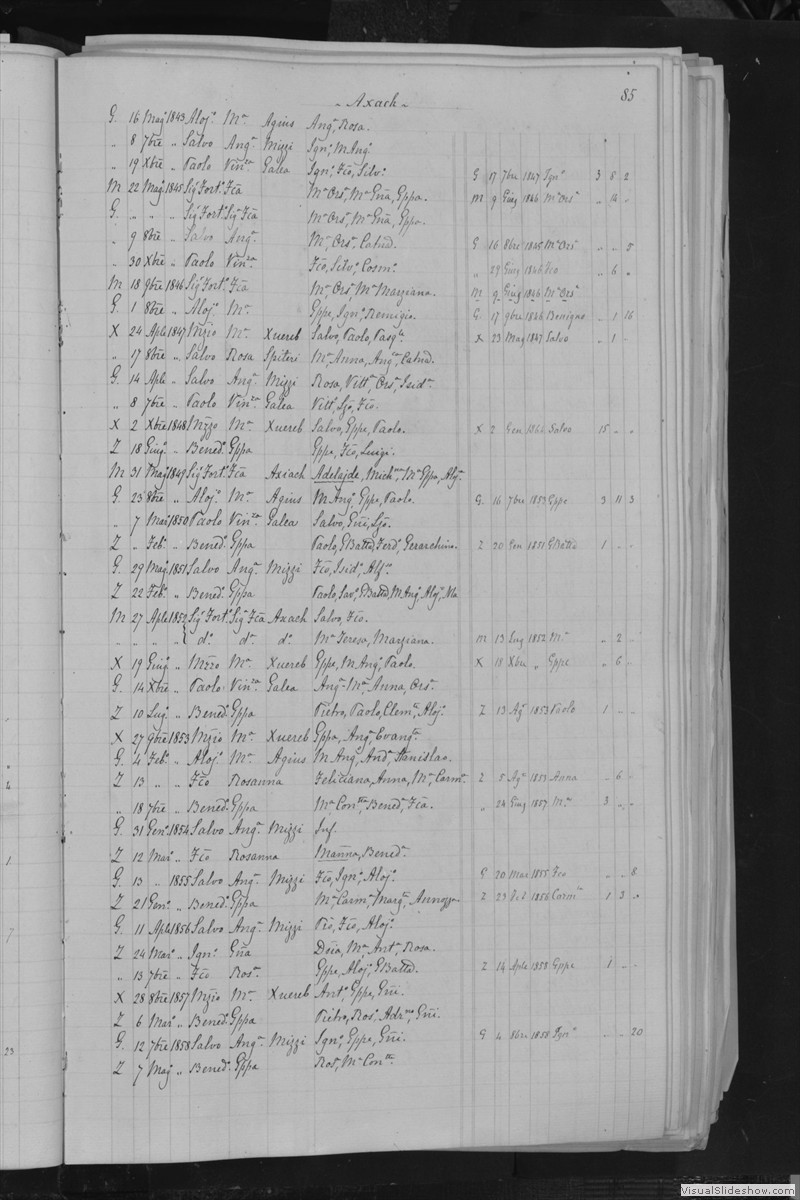 85
Axach
G. 16 Mag. 1843 Aloj. Mª Agius Angª, Rosa.
„ 8 7bre „ Salvo Angª Mizzi Ignº, M. Angª
„ 19 Xbre „ Paolo Vinzª Galea Ignº, Fco, Silvº G 17 7bre 1847 Ignº 3 6 2
M 22 Mag. 1845 Sig. Fortº Fca Mª Orsª, Mª Gna, Eppa. M 9 Giug 1846 Mª Orsª „ 14 „
G. „ „ „ Sig. Fortº Sig. Fca Mª Orsª, Mª Gna, Eppa.
„ 9 8bre „ Salvo Angª Mª, Orsª, Catnd. G 16 8bre 1845 Mª Orsª „ „ 5
„ 30 Xbre „ Paolo Vinzª Fco, Silvº, Cosmº. „ 29 Giug 1846 Fco „ 6 „
M 18 9bre 1846 Sig. Fortº Fca Mª, Orsª, Mª Marziana. M 9 Giug 1846 Mª Orsª
G. 1 8bre „ Aloj. Mª Gppe, Ignº, Remigio. G. 17 9bre 1846 Benigno „ 1 16
X 24 Aple 1847 Mzio Mª Xuereb Salvo, Paolo, Pasqle X 23 Mag 1847 Salvo „ 1 „
„ 17 8bre „ Salvo Rosa Spiteri Mª, Anna, Angª, Catnd.
G. 14 Aple „ Salvo Angª Mizzi Rosa, Vittª, Orsª, Isidª
„ 8 7bre „ Paolo Vinzª Galea Vittº, Fco.
X 2 Xbre 1848 Mzzo Mª Xuereb Salvo, Gppe, Paolo. X 2 Gen 1864 Salvo 15 „ „
Z 18 Giugº „ Bened. Gppa Gppe, Fco, Luigi.
M 31 Mag. 1849 Sig. Fortº Fca Axiach Adelajde, Michna, Mª Gppa, Aloj.
G. 23 8bre „ Aloj. Mª Agius M. Angº, Gppe, Paolo. G. 16 7bre 1853 Gppe 3 11 3
„ 7 Mar. 1850 Paolo Vinzª Galea Salvo, Gni.
Z „ Feb. „ Bened. Gppa Paolo, GBatta, Ferdº, Z 20 Gen 1851 GBatta 1 „ „
G. 29 Mag. 1851 Salvo Angª Mizzi Fco, Isidº, Alfº.
Z 22 Feb. „ Bened. Gppa Paolo, Savº, GBatta, M. Angº, Aloj.
M 27 Aple 1852 Sig. Fortº Sig. Fca Axach Salvo, Fco.
„ „ „ „ { dº. dº. dº. Mª Teresa, Marziana. M 13 Lug 1852 Mª „ 2 „
X 19 Giug „ Mzzo Mª Xuereb Gppe, M. Angº, Paolo. X 18 Xbre „ Gppe „ 6 „
G. 14 Xbre „ Paolo Vinzª Galea Angª, Mª Anna, Orsª.
Z 10 Lug. „ Bened. Gppa Pietro, Paolo, Clemº, Aloj. Z 13 Agº 1853 Paolo 1 „ „
X 27 9bre 1853 Mzio Mª Xuereb Gppa, Angª, Evangª.
G. 4 Feb. „ Aloj. Mª Agius M. Angº, Andª, Stanislao.
Z 13 „ „ Fco Rosanna Feliciana, Anna, Mª Carmª. Z 5 Agº 1853 Anna „ 6 „
„ 18 7bre „ Bened. Gppa Mª Conne, Bened., Fca. „ 24 Giug 1857 Mª 3 „ „
G. 31 Gen. 1854 Salvo Angª Mizzi Inf.
Z 12 Mar. „ Fco Rosanna Manna, Bened.
G. 13 „ 1855 Salvo Angª Mizzi Fco, Ignº, Aloj. G 20 Mar 1855 Fco „ „ 8
Z 21 Gen. „ Bened. Gppa Mª Carmª, Margª, Annezza. Z 23 1856 Carmª 1 3 „
G. 11 Aple 1856 Salvo Angª Mizzi Pio, Fco, Aloj.
Z 24 Mar. „ Ignº Gna Dsia, Mª Antª, Rosa.
„ 13 7bre „ Fco Rosª. Gppe, Aloj., GBatta. Z 14 Aple 1858 Gppe 1 „ „
X 28 8bre 1857 Mzio Mª Xuereb Antº, Gppe, Gni.
Z 6 Mar. „ Bened. Gppa Pietro, Rosº, Adrno, Gni.
G. 12 7bre 1858 Salvo Angª Mizzi Ignº, Gppe, Gni. G 4 8bre 1858 Ignº „ „ 20
Z 7 Mag „ Bened. Gppa Rosª, Mª Conne.
4
1
7
23
VisualSlideshow.com